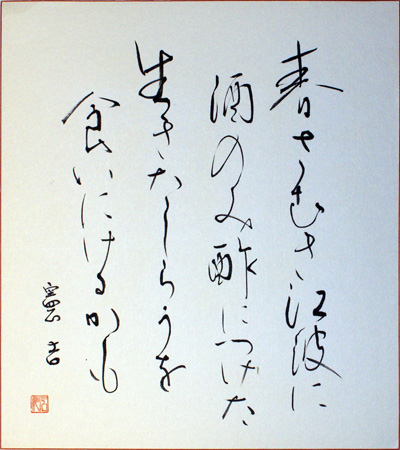 春さむき江波に
酒のみ酢につけた
生きたしらうを
食いにけるかも
憲吉